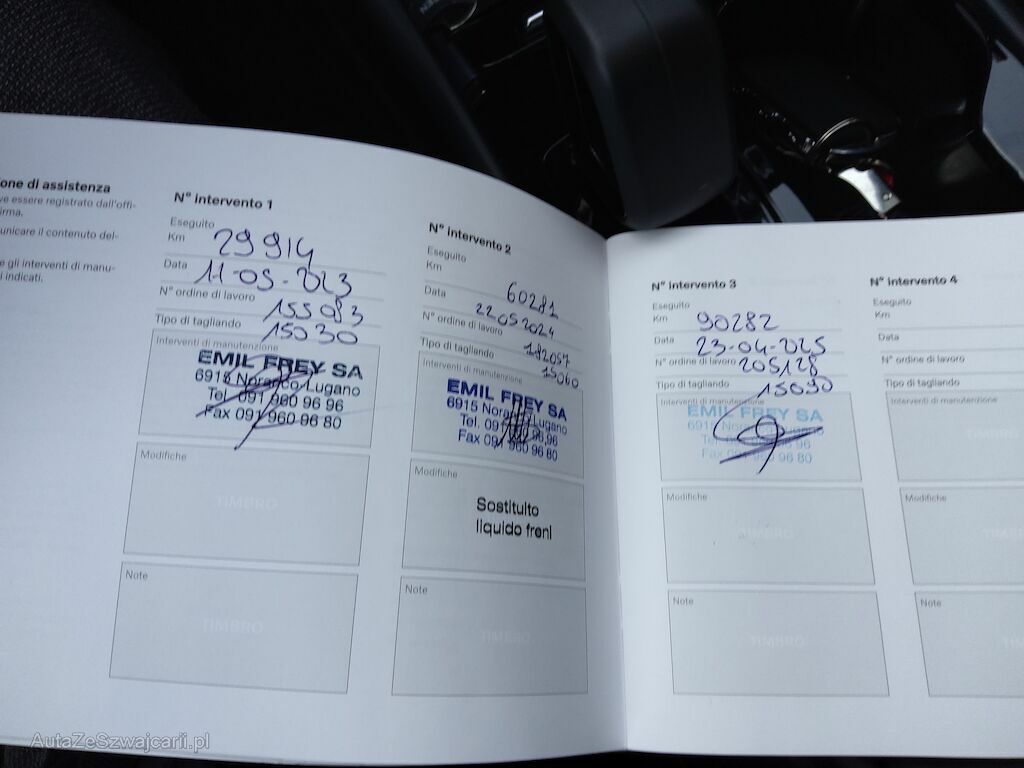 one di assistenza
ve essere registrato dall'offi-
irma.
unicare il contenuto del-
e gli interventi di manu-
i indicati.
N° intervento 1
Eseguito
Km 29914
Data 11-05-2023
N° ordine di lavoro 155083
Tipo di tagliando 15030
Interventi di manutenzione
EMIL FREY SA
6915 Noranco-Lugano
Tel. 091 960 96 96
Fax 091 960 96 80
Modifiche
TIMBRO
Note
TIMBRO
N° intervento 2
Eseguito
Km 60281
Data 22052024
N° ordine di lavoro 182057
Tipo di tagliando 15060
Interventi di manutenzione
EMIL FREY SA
6915 Noranco-Lugano
Tel. 091 960 96 96
Fax 091 960 96 80
Modifiche
Sostituito
liquido freni
Note
TIMBRO
N° intervento 3
Eseguito
Km 90282
Data 23-04-2025
N° ordine di lavoro 205128
Tipo di tagliando 15090
Interventi di manutenzione
EMIL FREY SA
6915 Noranco-Lugano
Tel. 091 960 96 96
Fax 091 960 96 80
Modifiche
TIMBRO
Note
TIMBRO
N° intervento 4
Eseguito
Km
Data
N° ordine di lavoro
Tipo di tagliando
Interventi di manutenzione
TIMBRO
Modifiche
TIMBR
Note
TIM
AutaZeSzwajcarii.pl